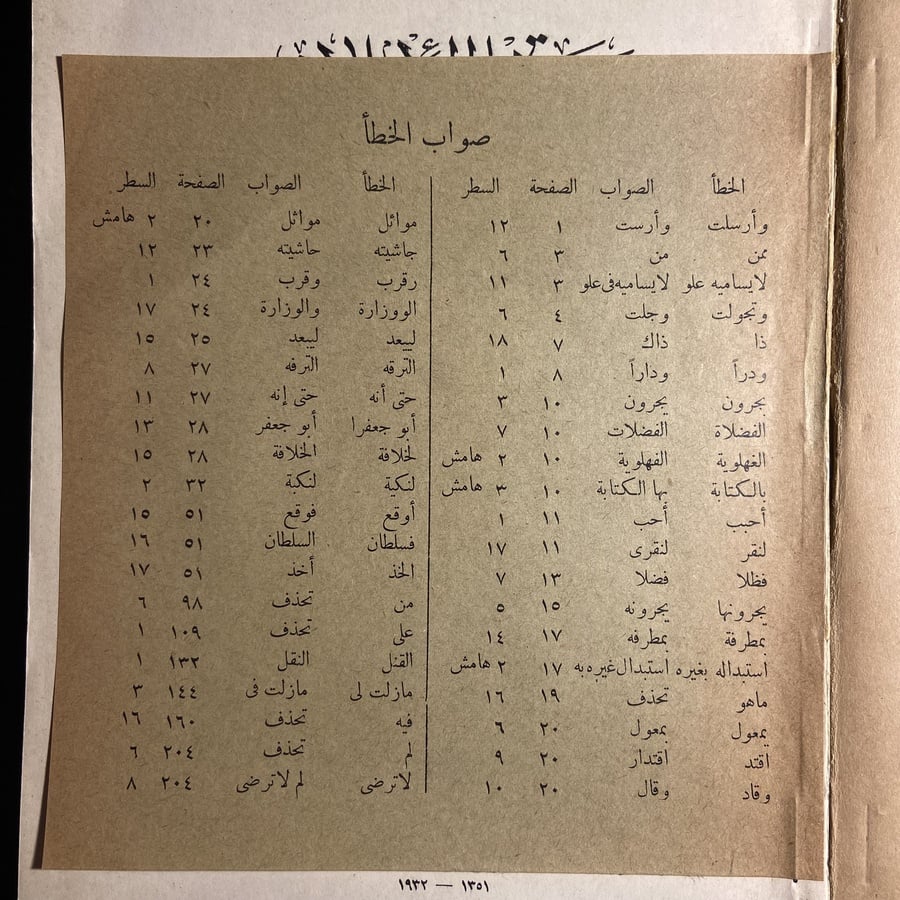 صواب الخطأ
الخطأ الصواب الصفحة السطر
وأرسلت وأرست ١ ١٢
ممن من ٣ ٦
لايساميه علو لايساميه فى علو ٣ ١١
وتجولت وجلت ٤ ٦
ذا ذاك ٧ ١٨
ودراً وداراً ٨ ١
بجرون يجرون ١٠ ٣
الفضلاة الفضلات ١٠ ٧
الغهلوية الفهلوية ١٠ ٢ هامش
بالكتابة بها الكتابة ١٠ ٣ هامش
أحبب أحب ١١ ١
لنقر لنقرى ١١ ١٧
فظلا فضلا ١٣ ٧
يجرونها يجرونه ١٥ ٥
بمطرفة بمطرفه ١٧ ١٤
استبداله بغيره استبدال غيره به ١٧ ٢ هامش
ماهو تحذف ١٩ ١٦
يمعول بمعول ٢٠ ٦
اقتد اقتدار ٢٠ ٩
وقاد وقال ٢٠ ١٠
الخطأ الصواب الصفحة السطر
موائل موائل ٢٠ ٢ هامش
جاشيته حاشيته ٢٣ ١٢
رقرب وقرب ٢٤ ١
الووزارة والوزارة ٢٤ ١٧
لييعد ليبعد ٢٥ ١٥
الترقه الترفه ٢٧ ٨
حتى أنه حتى إنه ٢٧ ١١
أبو جعفرا أبو جعفر ٢٨ ١٣
لخلافة الخلافة ٢٨ ١٥
لنكية لنكبة ٣٢ ٢
أوقع فوقع ٥١ ١٥
فسلطان السلطان ٥١ ١٦
الخذ أخذ ٥١ ١٧
من تحذف ٩٨ ٦
على تحذف ١٠٩ ١
القتل النقل ١٣٢ ١
مازلت لى مازلت فى ١٤٤ ٣
فيه تحذف ١٦٠ ١٦
لم تحذف ٢٠٤ ٦
لاترضى لم لاترضى ٢٠٤ ٨
١٣٥١ — ١٩٣٢